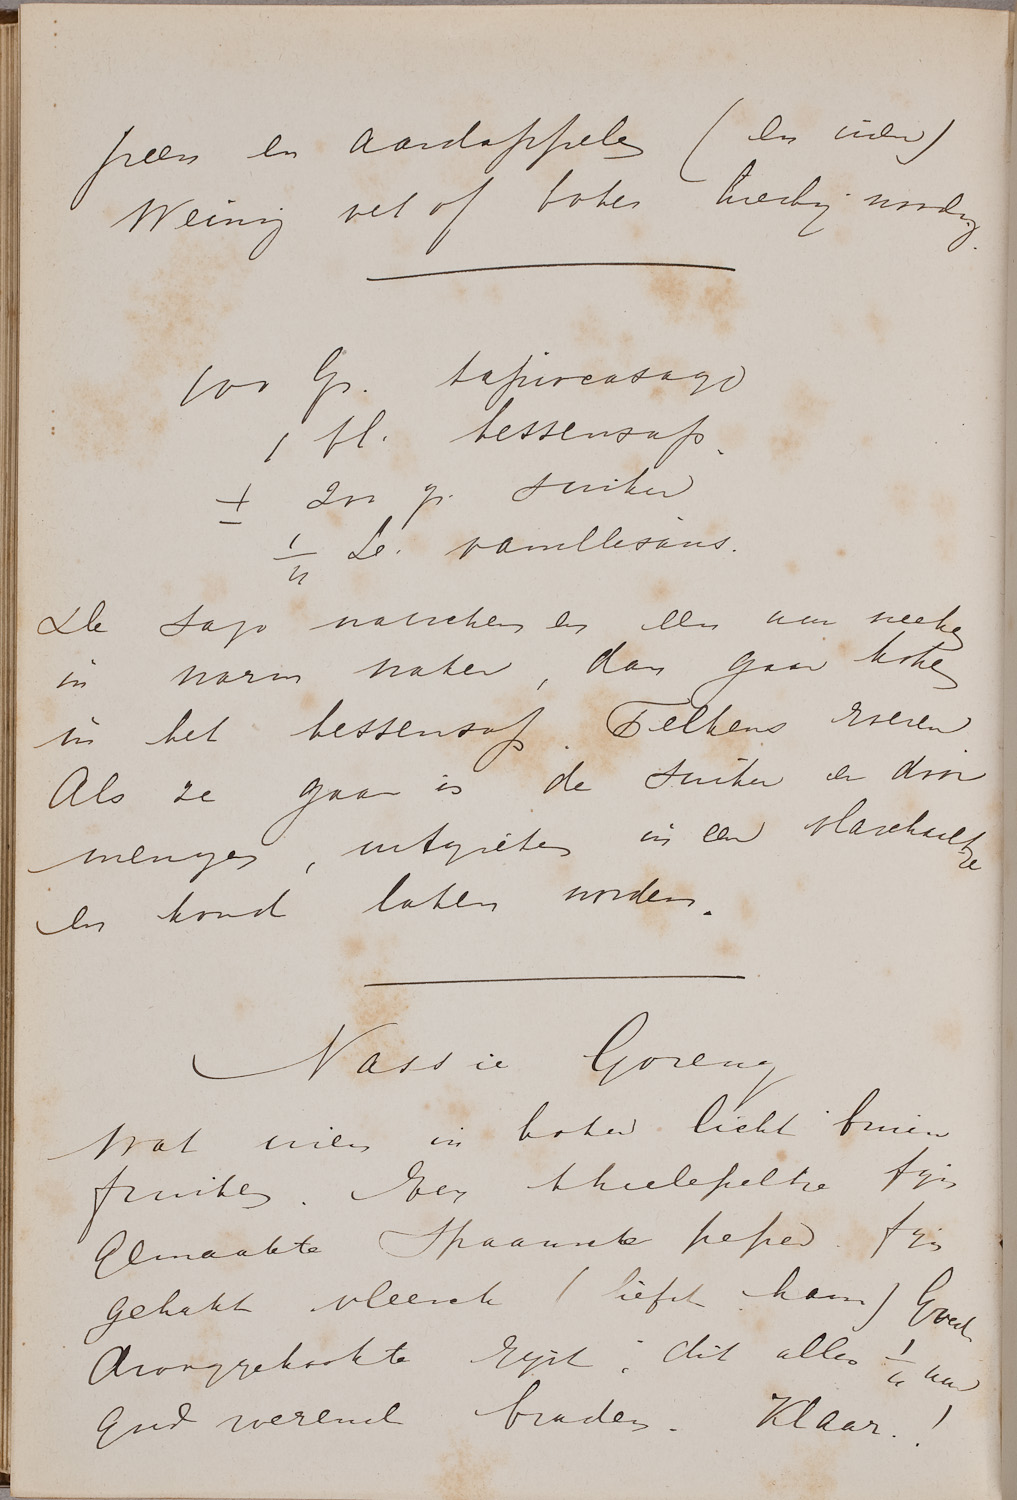 peen en aardappelen (en uien)
Weinig vet of boter hierbij noodig.
100 Gr. tapiocasago
1 fl. bessensap.
± 200 gr. suiker
½ L. vanillesaus.
De sago wasschen en een uur weeken
in warm water, dan gaar koken
in het bessensap. Telkens roeren
Als ze gaar is de suiker er door
mengen, uitgieten in een vlaschaaltje
en koud laten worden.
Nassie Goreng
Wat uien in boter licht bruin
fruiten. Een theelepeltje fijn
gemaakte Spaansche peper. fijn
gehakt vleesch (liefst ham) Goed
drooggekookte rijst, dit alles ½ uur
goed roerend braden. Klaar.!